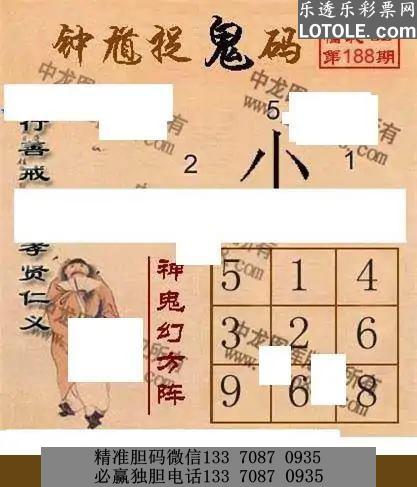 乐透乐彩票网
LOTOLE.COM
钟馗捉鬼码
第188期
行善戒
孝贤仁义
5
2
小
1
神鬼幻方阵
5 1 4
3 2 6
9 6 8
精准胆码微信133 7087 0935
必赢独胆电话133 7087 0935